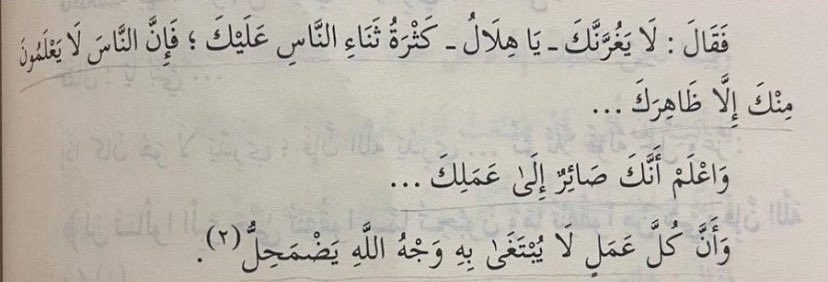 فَقَالَ : لَا يَغُرَّنَّكَ - يَا هِلَالُ - كَثْرَةُ ثَنَاءِ النَّاسِ عَلَيْكَ ؛ فَإِنَّ النَّاسَ لَا يَعْلَمُونَ
مِنْكَ إِلَّا ظَاهِرَكَ ...
وَاعْلَمْ أَنَّكَ صَائِرٌ إِلَىٰ عَمَلِكَ ...
وَأَنَّ كُلَّ عَمَلٍ لَا يُبْتَغَىٰ بِهِ وَجْهُ اللَّهِ يَضْمَحِلُّ (٢) .